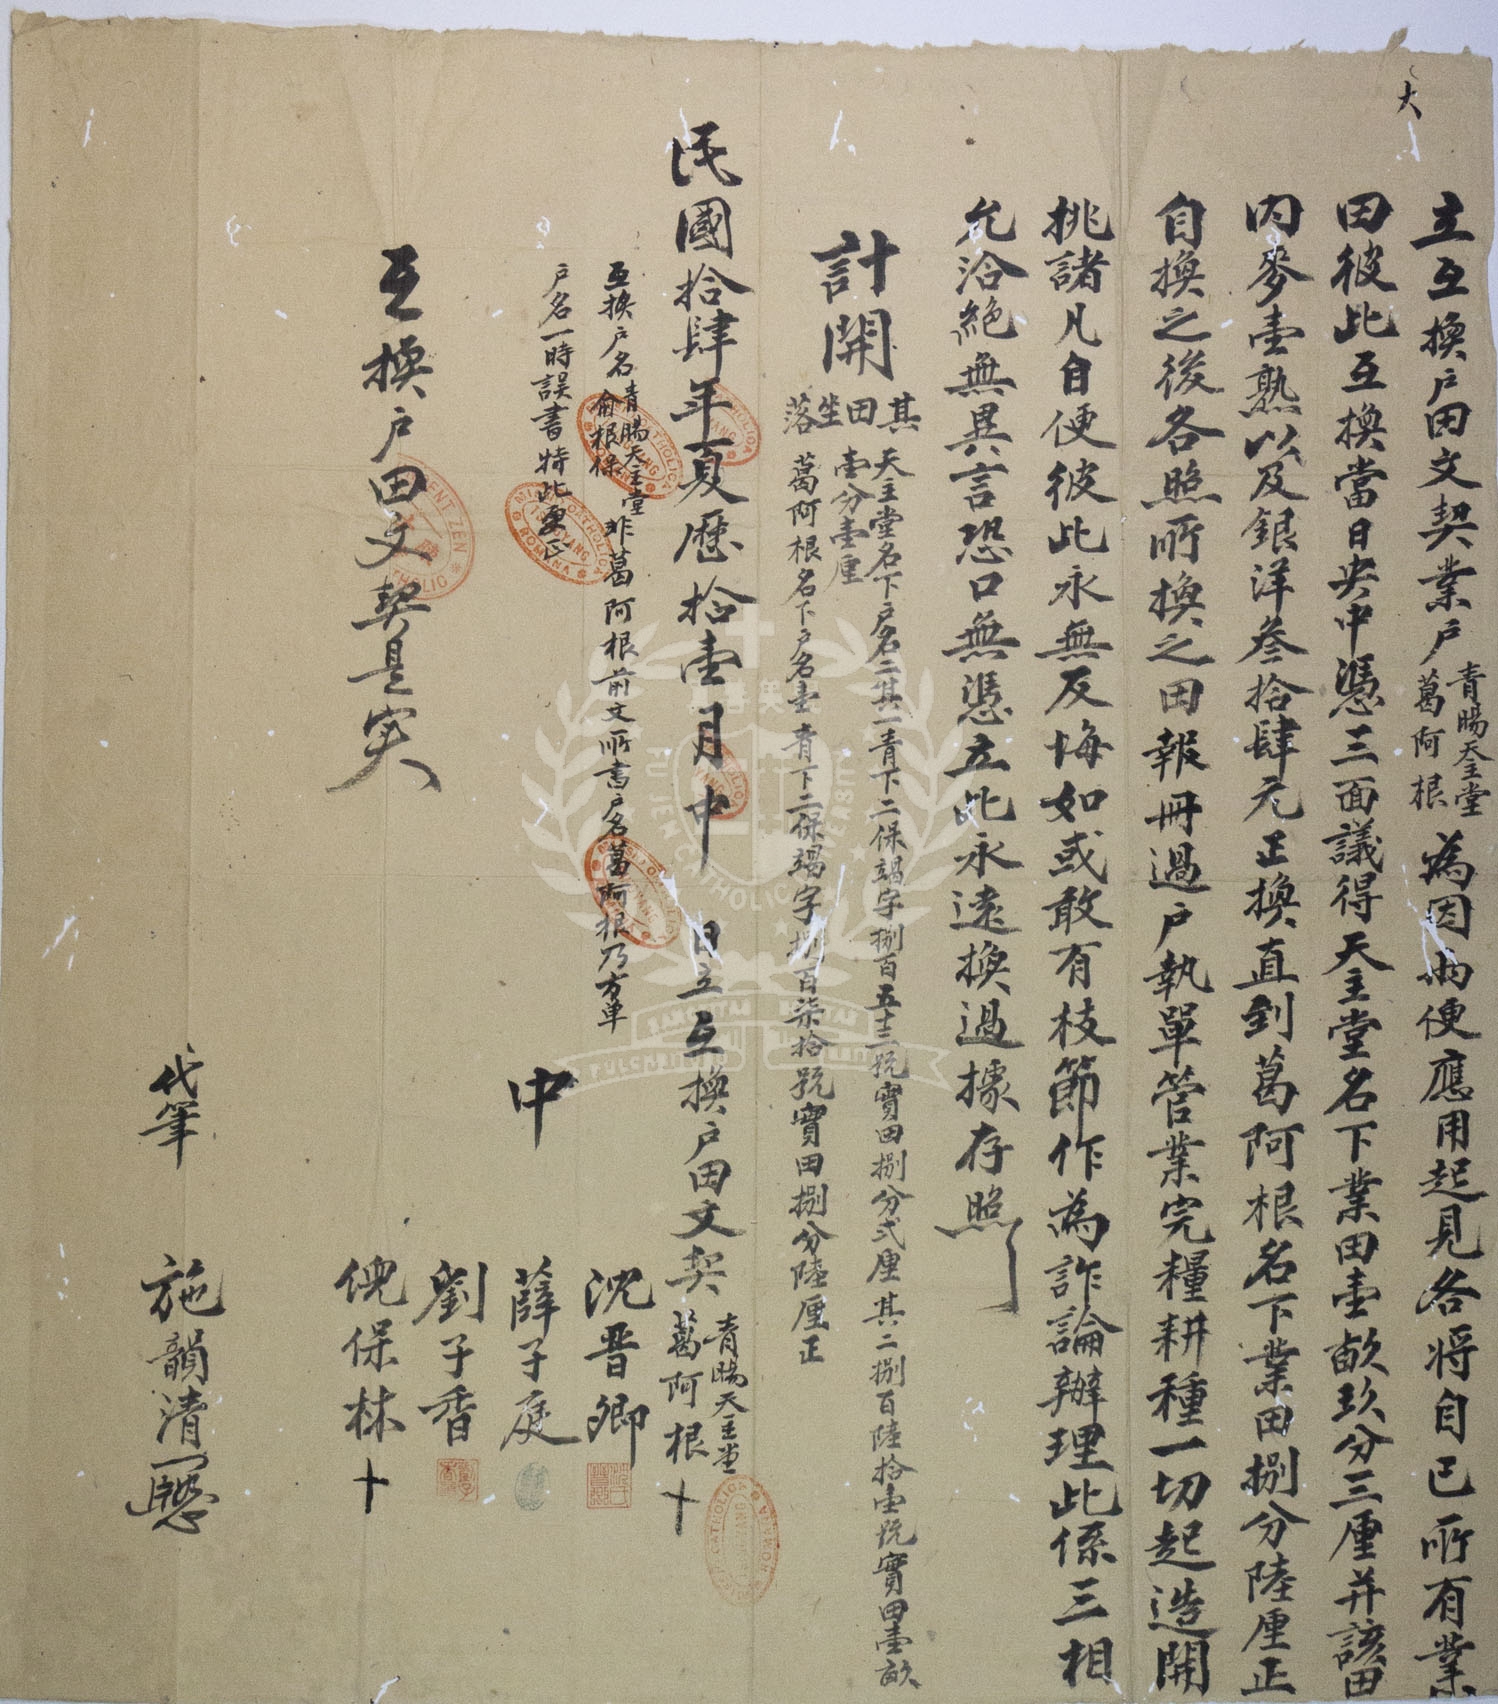 大
立互換戶田文契業戶青暘天主堂葛阿根為因兩便應用起見各將自己所有業
田彼此互換當日央中憑三面議得天主堂名下業田壹畝玖分三厘并該田
內麥壹熟以及銀洋叁拾肆元正換直到葛阿根名下業田捌分陸厘正
自換之後各照所換之田報冊過戶執單管業完糧耕種一切起造開
挑諸凡自便彼此永無反悔如或敢有枝節作為詐論辦理此係三相
允洽絕無異言恐口無憑立此永遠換過據存照
計開
其田坐落
天主堂名下戶名二其一青下二保竭字捌百五十三號實田捌分弍厘其二捌百陸拾壹號實田壹畝
壹分壹厘
葛阿根名下戶名壹青下二保竭字捌百柒拾號實田捌分陸厘正
民國拾肆年夏曆拾壹月中 日立互換戶田文契青暘天主堂葛阿根十
互換戶名青暘天主堂俞根保非葛阿根前文所書戶名葛阿根乃方單
戶名一時誤書特此更正
中
沈晋卿
薛子庭
劉子香
倪保林十
互換戶田文契是实
代筆 施韻清